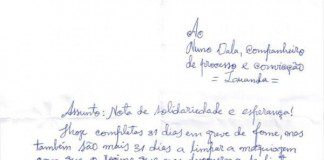 Ao
Nuno Dala, companheiro
de processo e convicção
= Luanda =
Assunto: Nota de solidariedade e esperança!
Hoje completas 31 dias em greve de fome, mas
também são mais 31 dias a limpar a maquiagem
com que o regime